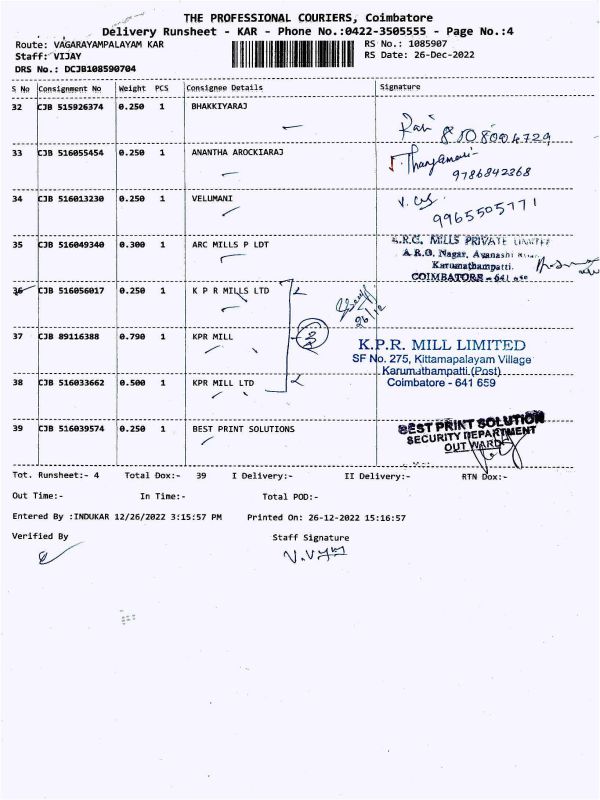 THE PROFESSIONAL COURIERS, Coimbatore
Delivery Runsheet - KAR - Phone No.:0422-3505555 - Page No.:4
Route: VAGARAYAMPALAYAM KAR RS No.: 1085907
Staff: VIJAY RS Date: 26-Dec-2022
DRS No.: DCJB108590704
S No Consignment No Weight PCS Consignee Details Signature
32 CJB 515926374 0.250 1 BHAKKIYARAJ
Ravi 8108004729
33 CJB 516055454 0.250 1 ANANTHA AROCKIARAJ
9786842368
34 CJB 516013230 0.250 1 VELUMANI
9965505771
35 CJB 516049340 0.300 1 ARC MILLS P LDT
A.R.C. MILLS PRIVATE LIMITED
A.R.O. Nagar, Avanashi
Karumathampatti.
COIMBATORE - 641
36 CJB 516056017 0.250 1 K P R MILLS LTD
26/12
37 CJB 89116388 0.790 1 KPR MILL
3
K.P.R. MILL LIMITED
SF No. 275, Kittamapalayam Village
Karumathampatti (Post)
Coimbatore - 641 659
38 CJB 516033662 0.500 1 KPR MILL LTD
39 CJB 516039574 0.250 1 BEST PRINT SOLUTIONS
BEST PRINT SOLUTION
SECURITY DEPARTMENT
OUT WARD
Tot. Runsheet:- 4 Total Dox:- 39 I Delivery:- II Delivery:- RTN Dox:-
Out Time:- In Time:- Total POD:-
Entered By :INDUKAR 12/26/2022 3:15:57 PM Printed On: 26-12-2022 15:16:57
Verified By Staff Signature